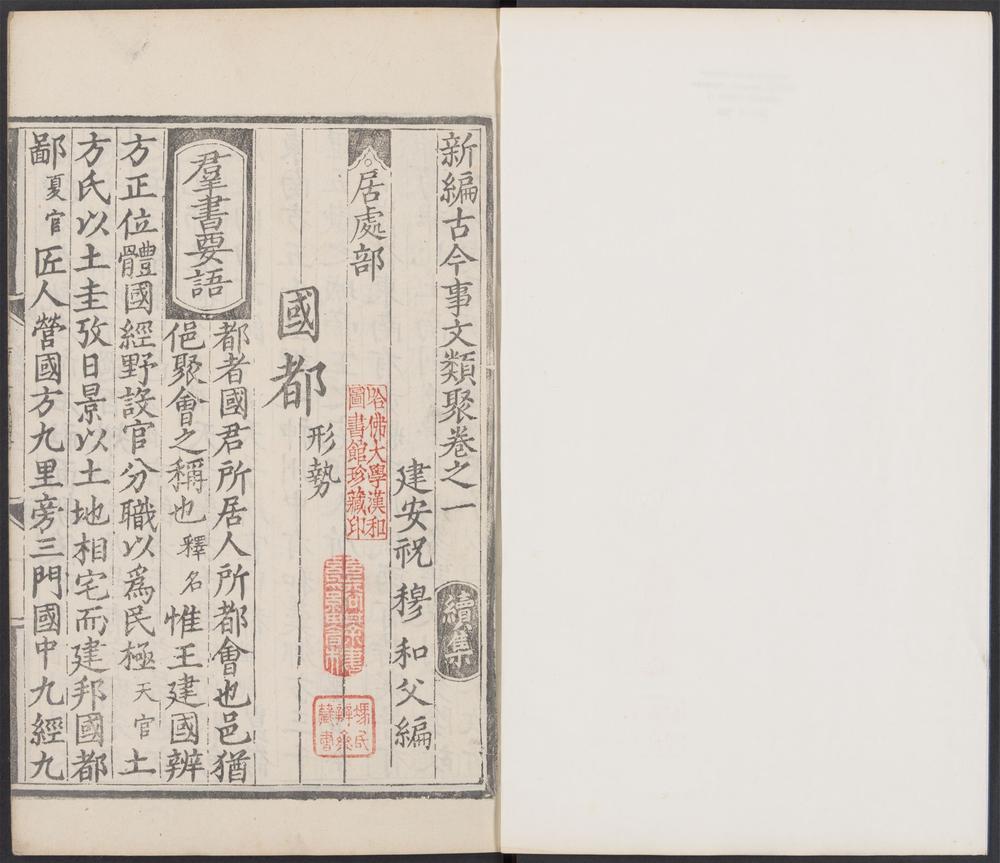 新編古今事文類聚卷之一 續集
建安祝穆和父編
居處部
國都 形勢
羣書要語
都者國君所居人所都會也邑猶
俋聚會之稱也釋名惟王建國辨
方正位體國經野設官分職以爲民極天官土
方氏以土圭攷日景以土地相宅而建邦國都
鄙夏官匠人營國方九里旁三門國中九經九
哈佛大學漢和
圖書館珍藏印